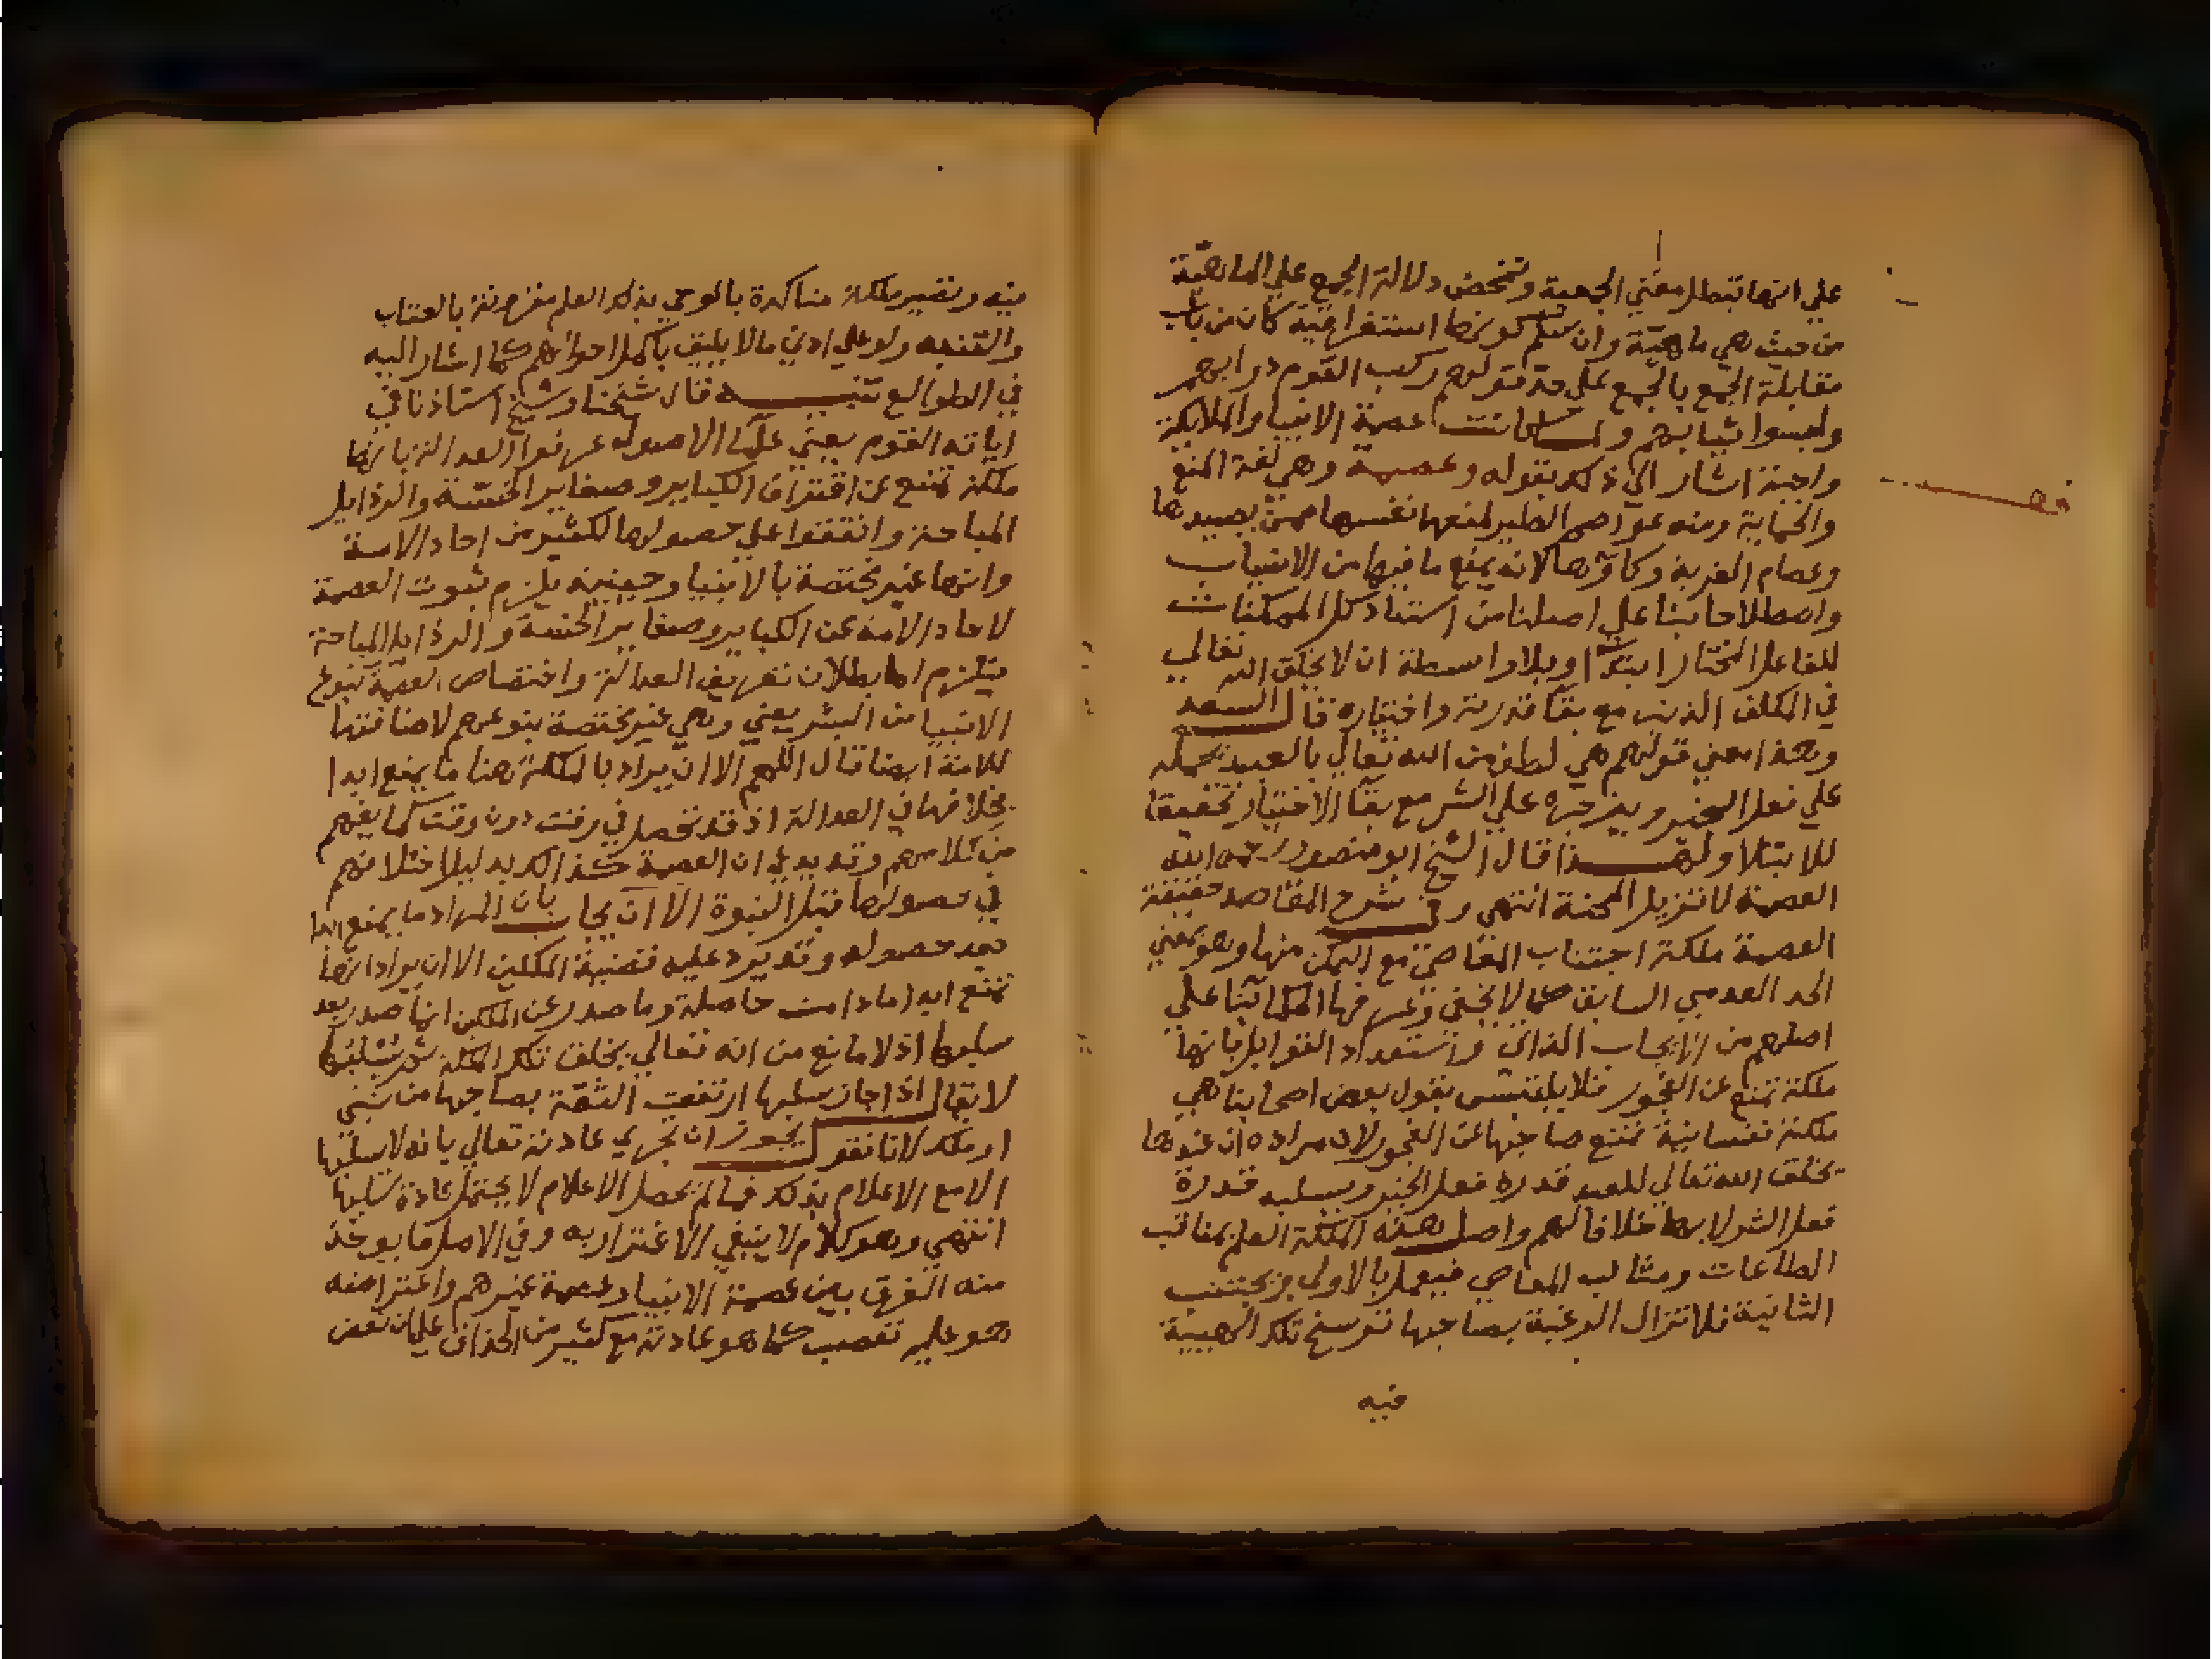 علي انها تبطل معني الجمعية وتمحض دلالة الجمع علي الماهيّة
من حيث هي ماهيّة وان سلم كونها استغراقيّة كان من باب
مقابلة الجمع بالجمع علي حد قولهم ركب القوم دوابهم
ولبسوا ثيابهم ولما كانت عصمة الانبيا والملايكة
واجبة اشار الي ذلك بقوله وعصمة وهي لغة المنع
والحماية ومنه عواصم الطير لمنعها نفسها ممن يصيدها
وعصام القربة وكاؤها لانه يمنع ما فيها من الانسياب
واصطلاحا بنا علي اصلنا من استناد كل الممكنات
للفاعل المختار ابتداء وبلا واسطة ان لا يخلق الله تعالي
في المكلف الذنب مع بقا قدرته واختياره قال السعد
وهذا معني قولهم هي لطف من الله تعالي بالعبد يحمله
علي فعل الخير ويزجره علي الشر مع بقا الاختيار تحقيقا
للابتلا ولهذا قال الشيخ ابو منصور رحمه الله
العصمة لا تزيل المحنة انتهي وفي شرح المقاصد حقيقة
العصمة ملكة اجتناب المعاصي مع التمكن منها وهو بمعني
الحد العدمي السابق كما لا يخفي وعرفها الحكما بنا علي
اصلهم من الايجاب الذاتي واستعداد القوابل بانها
ملكة تمنع عن الفجور فلا يلتبس بقول بعض اصحابنا هي
ملكة نفسانية تمنع صاحبها عن الفجور لان مراده ان عندها
يخلق الله تعالي للعبد قدرة فعل الخير ويسلبه قدرة
فعل الشر لا بها خلافا لهم واصل هذه الملكة العلم بمناقب
الطاعات ومثالب المعاصي فيعمل بالاولي ويجتنب
الثانية فلا تزال الرغبة بصاحبها ترسخ تلك الهيئة
فيه
فيه وتصير ملكة متاكدة بالوحي بذلك العلم مقرونة بالعتاب
والتنبيه ولو علي ادني ما لا يليق باكمل احوالهم كما اشار اليه
في الطوالع تنبيه قال شيخنا وشيخ استاذنا في
اياته القوم يعني علما الاصول عرفوا العدالة بانها
ملكة تمنع عن اقتراف الكباير وصغاير الخسة والرذايل
المباحة واتفقوا علي حصولها لكثير من احاد الامة
وانها غير مختصة بالانبيا وحينيذ يلزم ثبوت العصمة
لاحاد الامة عن الكباير وصغاير الخسة والرذايل المباحة
فيلزم اما بطلان تعريف العدالة واختصاص العصمة بنوع
الانبيا من البشر يعني وهي غير مختصة بنوعهم لاضافتها
للامة ايضا قال اللهم الا ان يراد بالملكة هنا ما يمنع ابدا
بخلافها في العدالة اذ قد تحصل في وقت دون وقت كما يفهم
من كلامهم وقد يدعي ان العصمة كذلك بدليل اختلافهم
في حصولها قبل النبوة الا ان يجاب بان المراد ما يمنع ابدا
بعد حصوله وقد يرد عليه قضية الملكين الا ان يراد انها
تمنع ابدا ما دامت حاصلة وما صدر عن الملكين انما صدر بعد
سلبها اذ لا مانع من انه تعالي يخلق تلك الملكة ثم يسلبها
لا يقال اذا جاز سلبها ارتفعت الثقة بصاحبها من نبي
او ملك لانا نقول يجوز ان تجري عادته تعالي بانه لا يسلبها
الا مع الاعلام بذلك فما لم يحصل الاعلام لا يحتمل عادة سلبها
انتهي وهو كلام لا ينبغي الاغترار به وفي الاصل ما يوخذ
منه الفرق بين عصمة الانبيا وعصمة غيرهم واعتراضه
هو عليه تعصب كما هو عادته مع كثير من الحذاق علي ان بعض